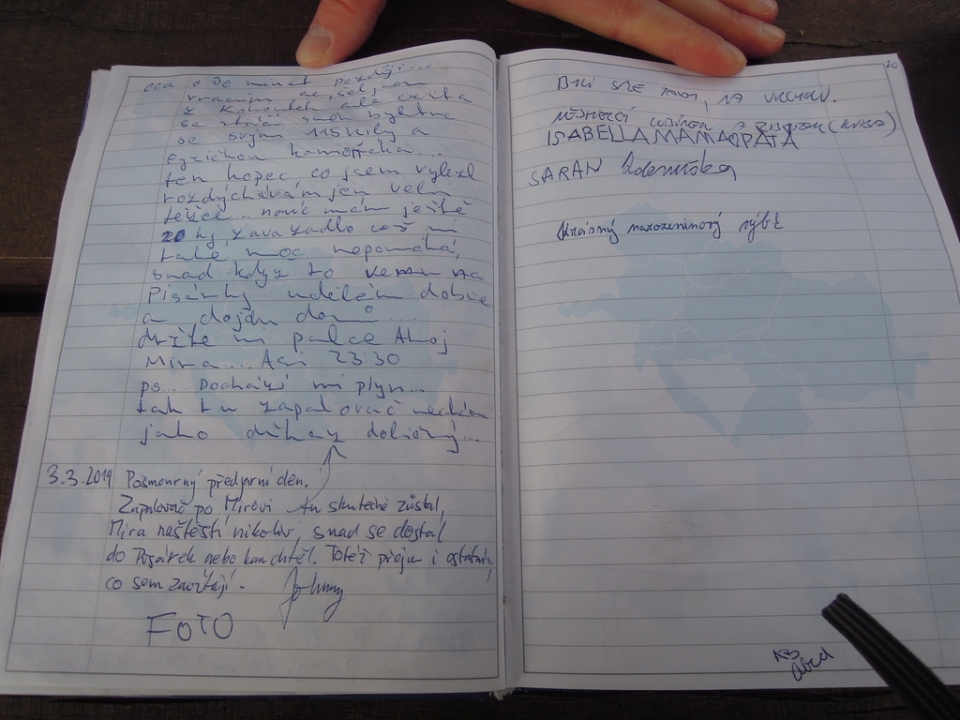 cca o 30 minut později...
vracím se, šel jsem
z Kohoutek ale cesta
se svým 115 kily a
fyzickou
ten kopec co jsem vylezl
rozdýchávám jen velmi
těžce.. navíc mám ještě
20 kg zavazadlo což mi
také moc nepomáhá,
snad když to vezmu na
Pisárky udělám dobře
a dojdu domů....
držte mi palce Ahoj
Míra... Asi 23:30
ps... Dochází mi plyn...
tak tu zapalovač nechám
jako důkaz doličný...
3.3.2019 Pošmourný předjarní den.
Zapalovač po Mírovi tu skutečně zůstal,
Míra naštěstí nikoliv, snad se dostal
do Pisárek nebo kam chtěl. Totéž přeju i ostatním,
co sem zavítají. Johnny
FOTO
20
BYLI SME TADY, NA VRCHOLU.
ISABELLA MAMA A PAPA
SARAN
Krásný narozeninový výlet